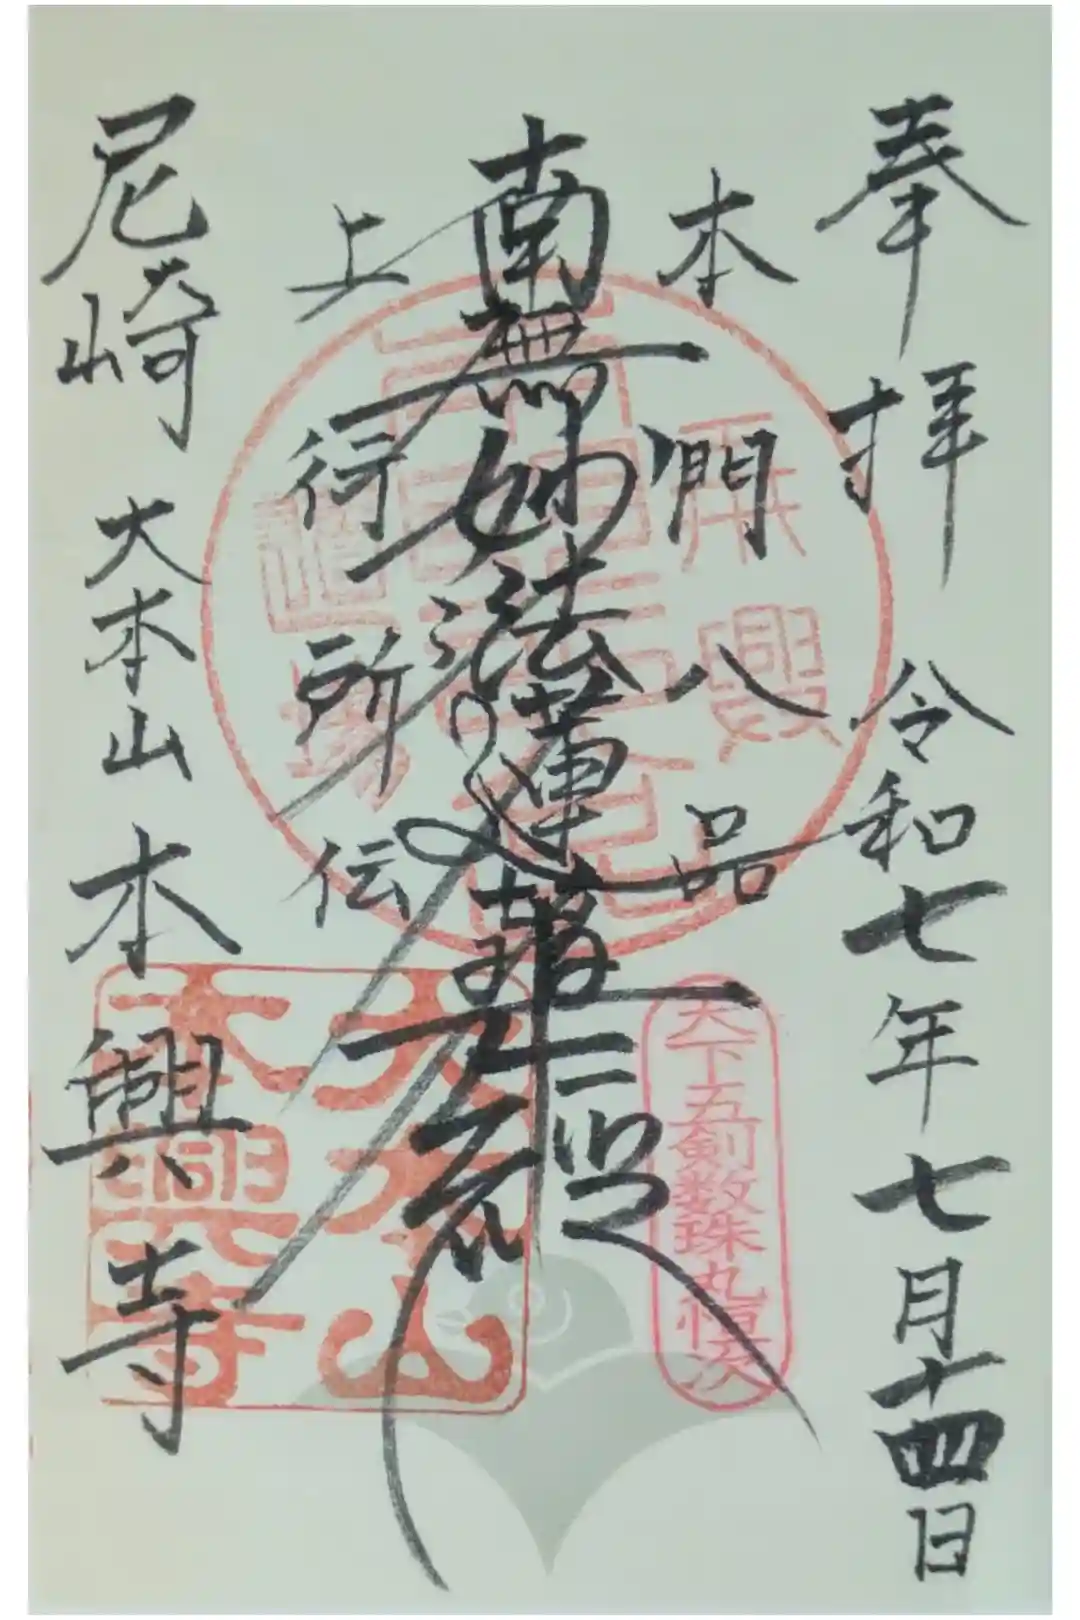 奉拝 令和七年七月十四日
本門八品
南無妙法蓮華経
上行所伝
尼崎 大本山 本興寺
天下五剣数珠丸恒次
大本山
本興寺